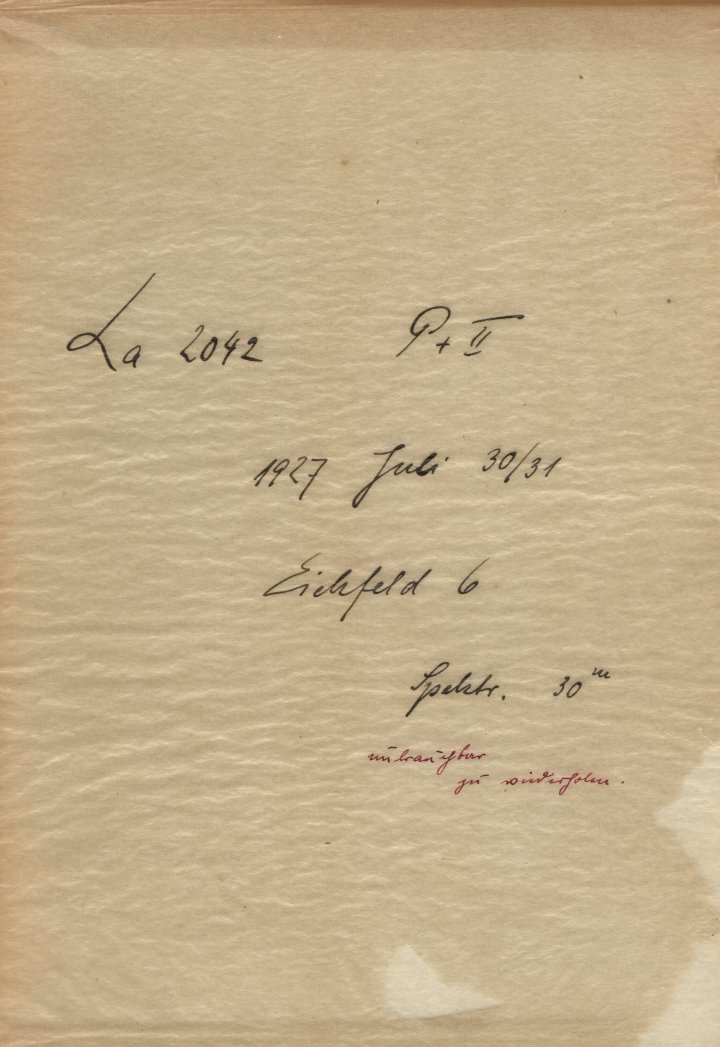 La 2042 P + II
1927 Juli 30/31
Eichfeld 6
Spektr. 30m
unbrauchbar
zu wiederholen.